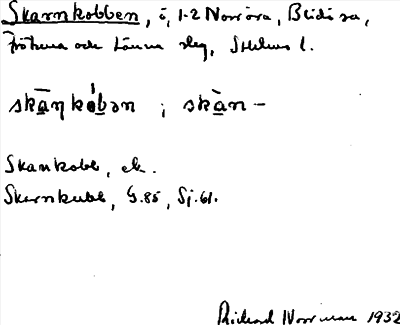 Skarnkobben, ö, 1-2 Norröra, Blidö sn,
Frötuna och Länna slg, Sthlms l.
skàŋkòbən ; skàn-
Skankobb, ek.
Skarnkubb, G.85, Sj.61.
Rickard Norrman 1932